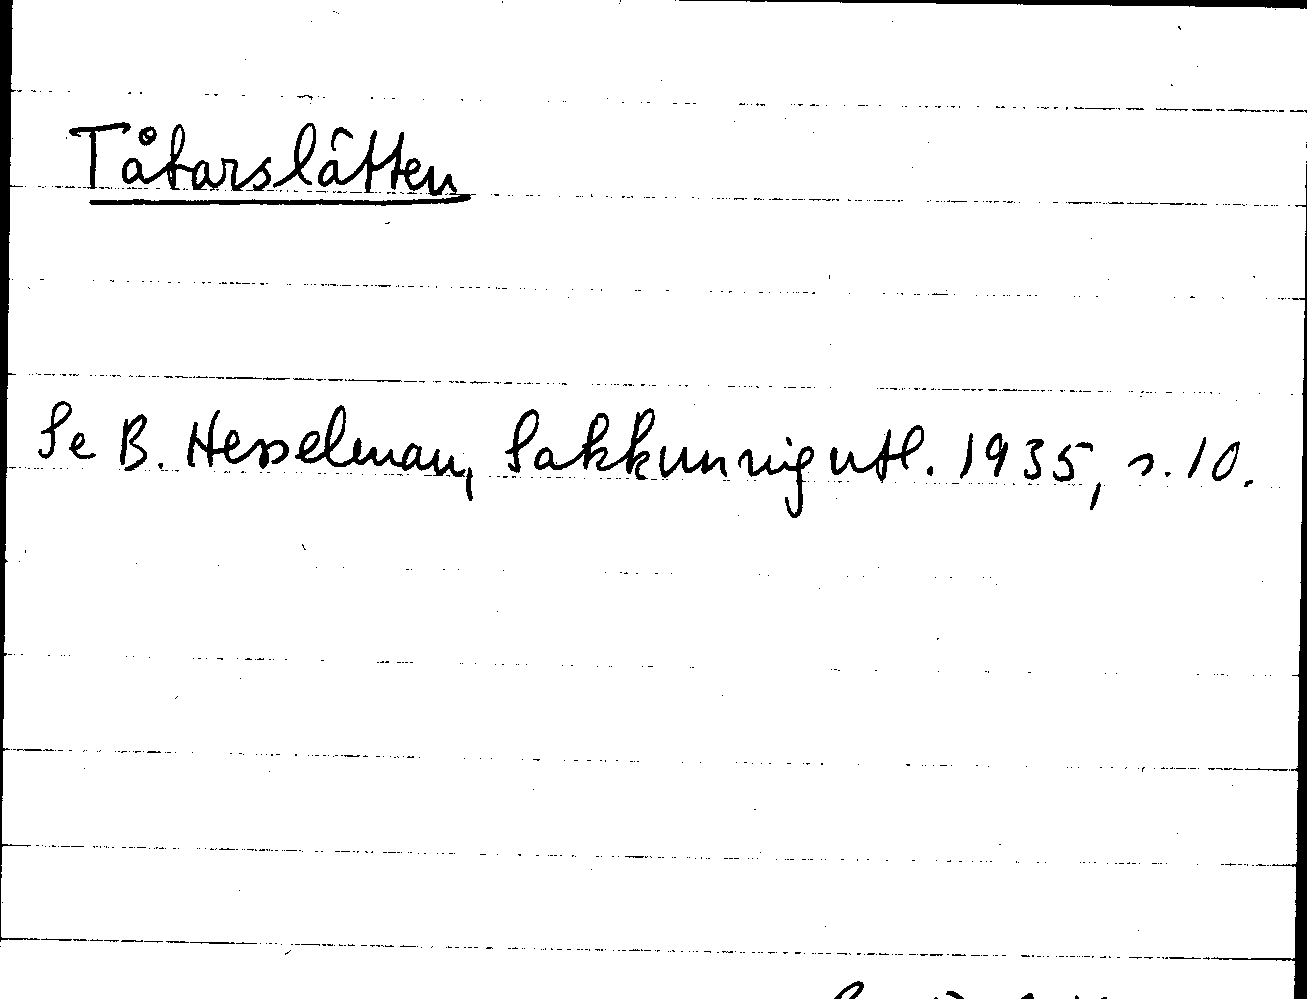 Tåtarslätten
Se B. Hesselman, Sakkunnigutl. 1935, s. 10.